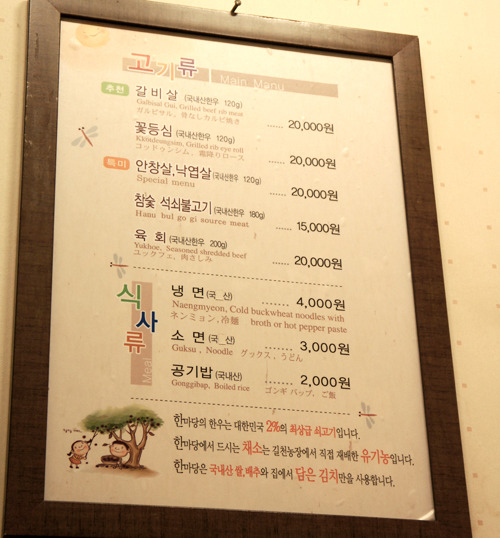 고기류 Main Menu
추천 갈비살 (국내산한우 120g) ...... 20,000원
Galbisal Gui, Grilled beef rib meat
ガルビサル、骨なしカルビ焼き
꽃등심 (국내산한우 120g) ...... 20,000원
Kkotdeungsim, Grilled rib eye roll
コッドゥンシム、霜降りロース
특미 안창살,낙엽살 (국내산한우 120g) ...... 20,000원
Special menu
참숯 석쇠불고기 (국내산한우 180g) ...... 15,000원
Hanu bul go gi source meat
육 회 (국내산한우 200g) ...... 20,000원
Yukhoe, Seasoned shredded beef
ユックフェ、肉さしみ
식사류 Meal
냉 면 (국_산) ....... 4,000원
Naengmyeon, Cold buckwheat noodles with
ネンミョン、冷麺 broth or hot pepper paste
소 면 (국_산) 3,000원
Guksu, Noodle グックス、うどん
공기밥 (국내산) 2,000원
Gonggibap, Boiled rice ゴンギ バップ、ご飯
한마당의 한우는 대한민국 2%의 최상급 쇠고기입니다.
한마당에서 드시는 채소는 길천농장에서 직접 재배한 유기농입니다.
한마당은 국내산 쌀,배추와 집에서 담은 김치만을 사용합니다.